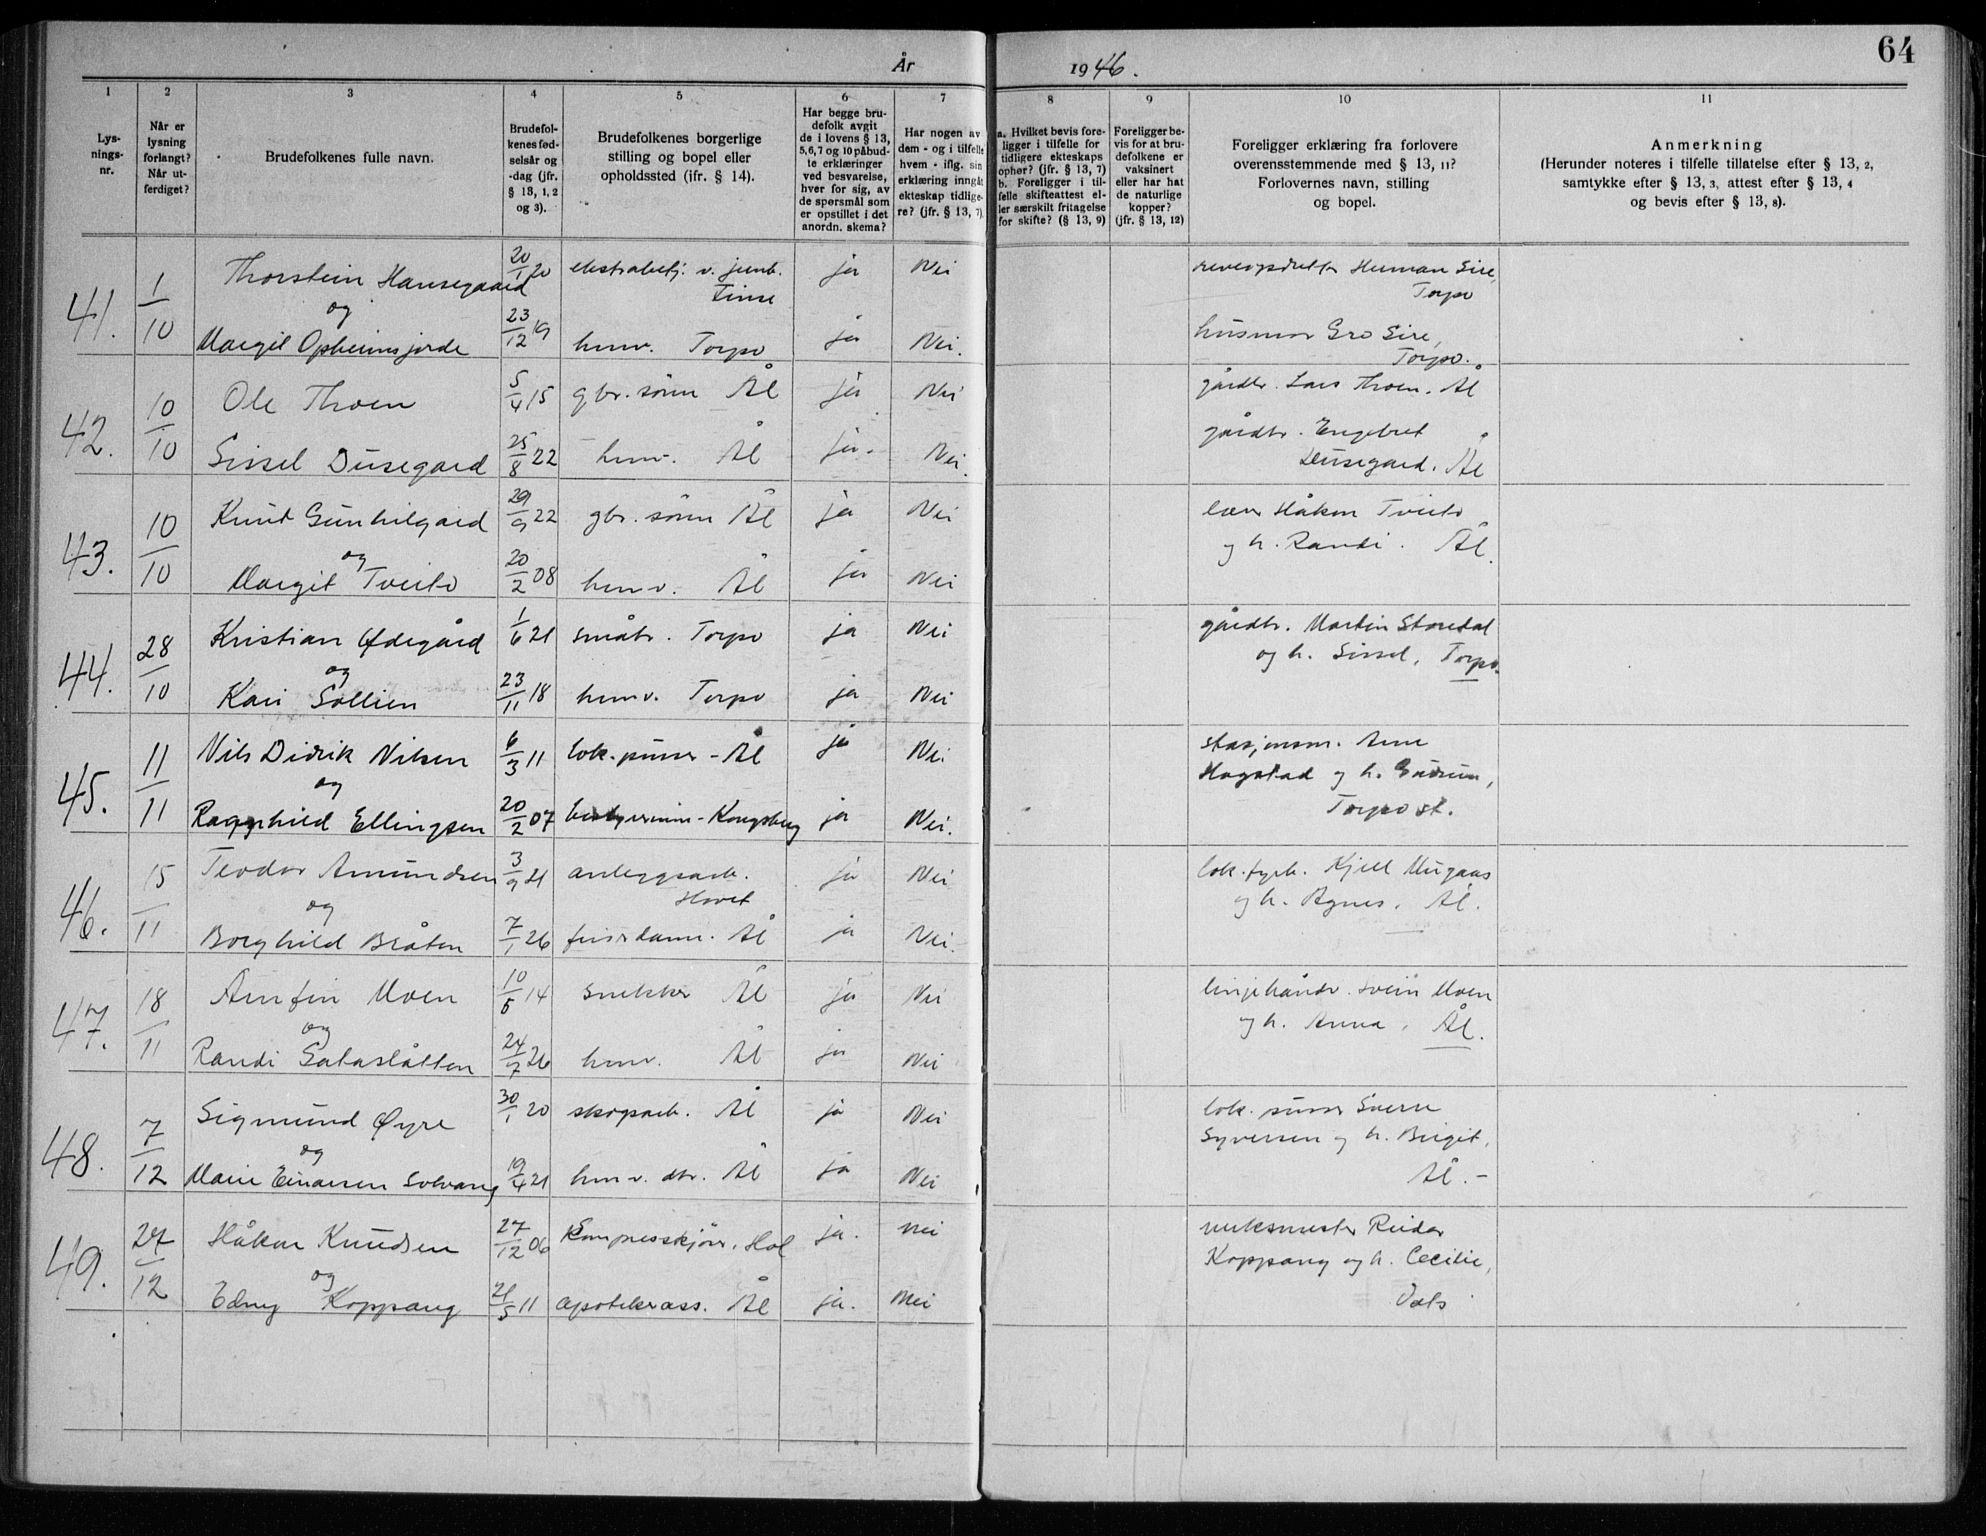 År
1946.
64
1
2
3
4
5
6
7
8
9
10
11
Lys-
nings-
nr.
Når er
lysning
forlangt?
Når ut-
ferdiget?
Brudefolkenes fulle navn.
Brudefol-
kenes fød-
selsår og
-dag (jfr.
§ 13, 1, 2
og 3).
Brudefolkenes borgerlige
stilling og bopel eller
opholdssted (ifr. § 14).
Har begge bru-
defolk avgit
de i lovens § 13,
5,6,7 og 10 påbud-
te erklæringer
ved besvarelse,
hver for sig, av
de spørsmål som
er opstillet i det
anordn. skema?
Har nogen av
dem - og i tilfelle
hvem - iflg. sin
erklæring inngåt
ekteskap tidlige-
re? (jfr. § 13, 7)
a. Hvilket bevis fore-
ligger i tilfelle for
tidligere ekteskaps
ophør? (jfr. § 13, 7)
b. Foreligger i til-
felle skifteattest el-
ler særskilt fritagelse
for skifte? (§ 13, 9)
Foreligger be-
vis for at bru-
defolkene er
vaksinert
eller har hat
de naturlige
kopper?
(jfr. § 13, 12)
Foreligger erklæring fra forlovere
overensstemmende med § 13, 11?
Forlovernes navn, stilling
og bopel.
Anmerkning
(Herunder noteres i tilfelle tillatelse efter § 13, 2,
samtykke efter § 13, 3, attest efter § 13, 4
og bevis efter § 13, 8).
41. 1/10 Thorstein Hansegaard 20/1 20 v. jernb. ja Nei Herman Sire,
Finse Torpo
og
Margit Opheimsjorde 23/12 19 husv. Torpo ja Nei. husmor Gro Sire,
Torpo.
42. 10/10 Ole Thoen 5/4 15 gbr. sønn Ål ja Nei gårdbr. Lars Thoen. Ål
Sissel Dusegard 25/8 22 husv. Ål ja. Nei. gårdbr. Engebret
Dusegard. Ål
43. 10/10 Knut Gunhilgard 29/9 22 gbr. sønn Ål ja Nei lærer Håkon Tveito
og h. Randi. Ål.
og
Margit Tveito 20/2 08 husv. Ål ja Nei
44. 28/10 Kristian Ødegård 1/6 21 småbr. Torpo ja Nei gårdbr. Martin Storedal
og h. Sissel, Torpo.
og
Kari Sollien 23/11 18 husv. Torpo ja Nei
45. 11/11 Nils Didrik Nilsen 6/3 11 lok.pusser - Ål ja Nei stasjonsm. Arne
Hagstad og h. Gudrun,
og
Torpo st.
Ragnhild Ellingsen 20/2 07 bestyrerinne - Kongsberg ja Nei.
46. 15/11 Teodor Amundsen 3/9 21 anleggsarb. ja Nei lok.fyrb. Kjell Mugaas
Hovet
og h. Agnes. Ål.
og
Borghild Bråten 7/1 26 frisørdame. Ål ja Nei.
47. 18/11 Arnfin Moen 10/5 14 snekker Ål ja Nei linjehåndv. Svein Moen
og h. Anna, Ål.
og
Randi Sataslåtten 24/7 26 husv. Ål ja Nei
48. 7/12 Sigmund Øyre 30/1 20 skogsarb. Ål ja Nei lok. pusser Sverre
Syversen og h. Birgit,
og
Marie Einarsen Solvang 19/4 21 husv. dtr. Ål ja Nei Ål. -
49. 27/12 Håkon Knudsen 27/12 06 Kompressorkjører, Hol ja. Nei verksmester Reidar
Koppang og h. Cecilie,
og
Edny Koppang 21/5 11 apotekerass. Ål ja. Nei Vats